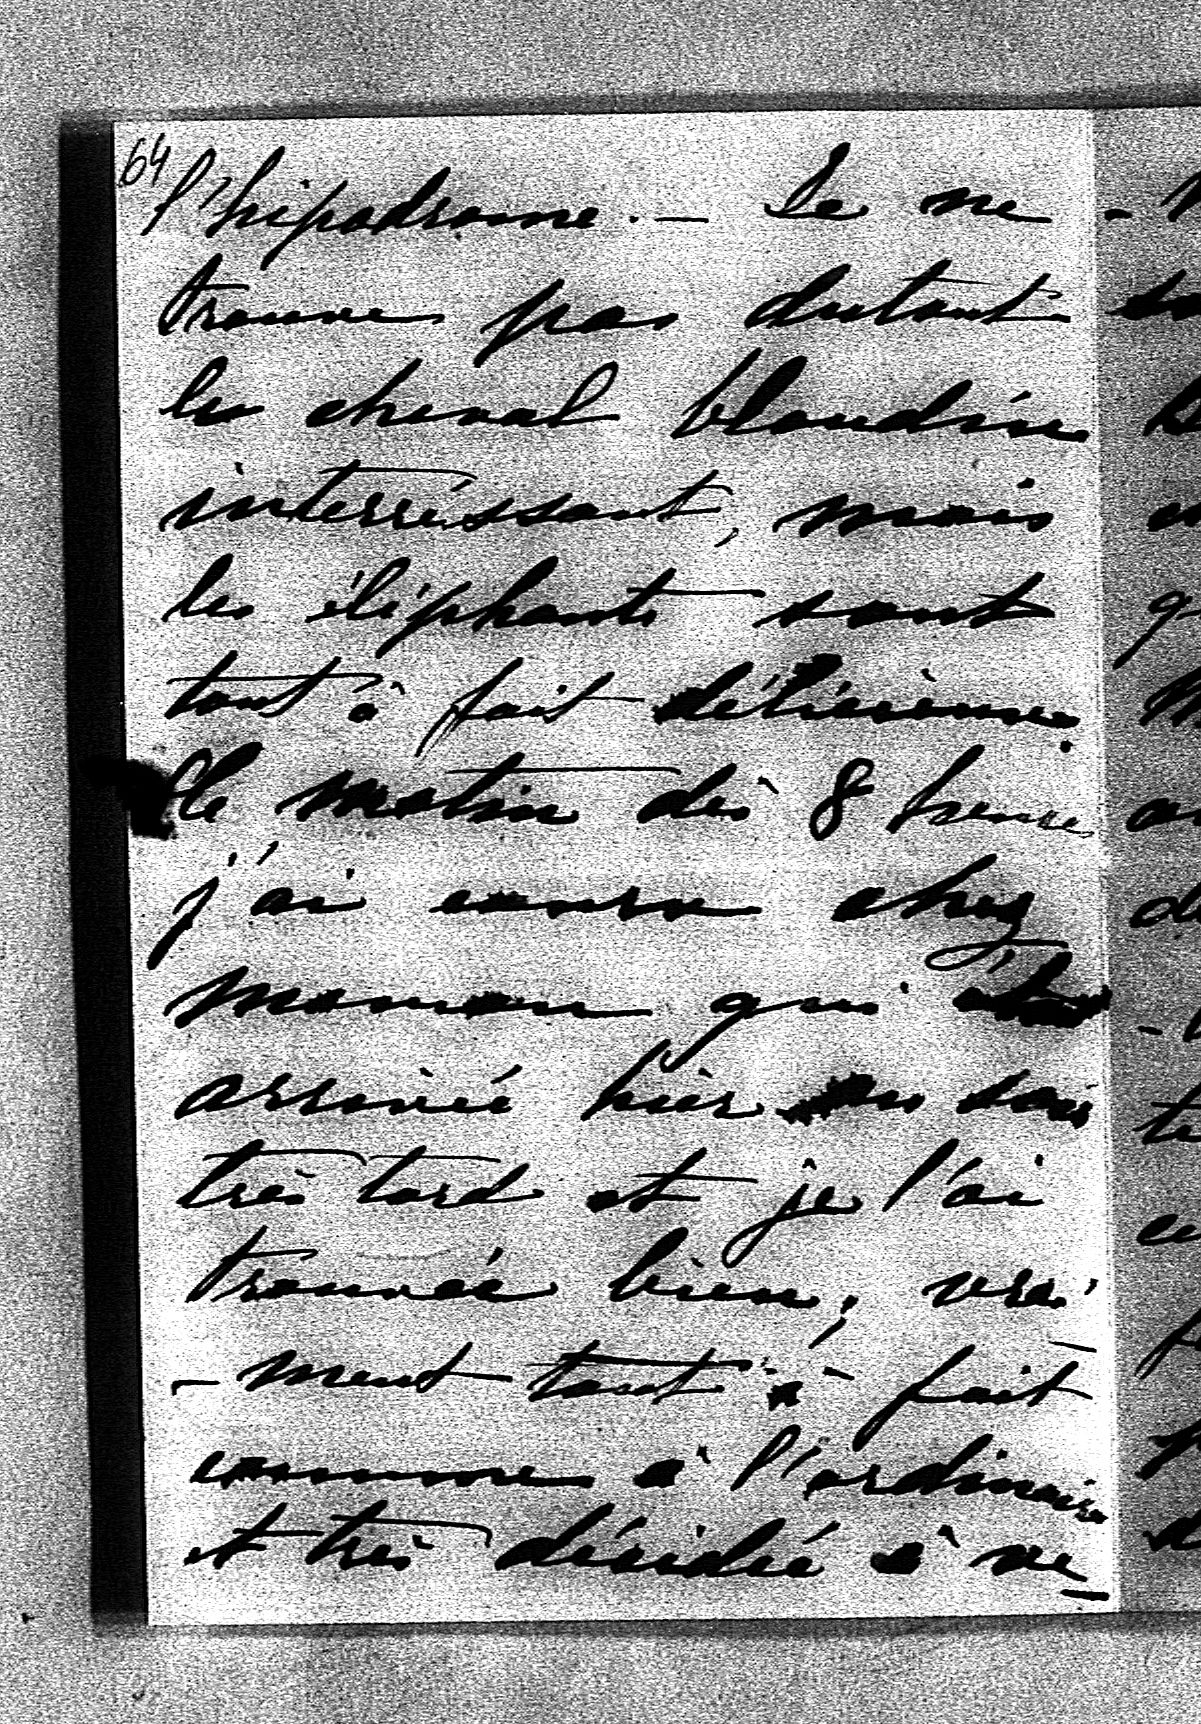 64
l'hipodrome. — Je ne
trouve pas dutout
le cheval blondin
interréssant, mais
les éléphants sont
tout à fait délicieux.
Le matin dès 8 heures
j'ai couru chez
maman qui était
arrivée hier au soir
très tard et je l'ai
trouvée bien, vrai
- ment tout à fait
comme à l'ordinaire
et très décidée à ve_